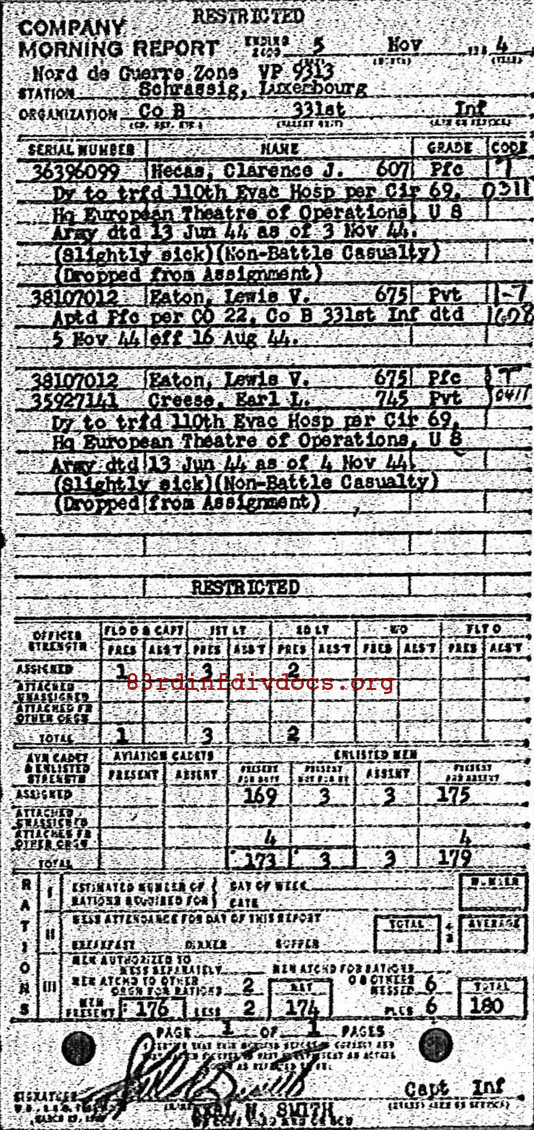 RESTRICTED
COMPANY
MORNING REPORT ENDING 2400 5 Nov 194 4
Nord de Guerre Zone VP 9313
STATION Schrassig, Luxembourg
ORGANIZATION Co B 331st Inf
SERIAL NUMBER NAME GRADE CODE
36396099 Hecas, Clarence J. 607 Pfc T
Dy to trfd 110th Evac Hosp per Cir 69, 0311
Hq European Theatre of Operations, U S
Army dtd 13 Jun 44 as of 3 Nov 44.
(Slightly sick)(Non-Battle Casualty)
(Dropped from Assignment)
38107012 Eaton, Lewis V. 675 Pvt 1-7
Aptd Pfc per CO 22, Co B 331st Inf dtd 1608
5 Nov 44 eff 16 Aug 44.
38107012 Eaton, Lewis V. 675 Pfc T
35927141 Creese, Earl L. 745 Pvt 0411
Dy to trfd 110th Evac Hosp per Cir 69,
Hq European Theatre of Operations, U S
Army dtd 13 Jun 44 as of 4 Nov 44.
(Slightly sick)(Non-Battle Casualty)
(Dropped from Assignment)
RESTRICTED
OFFICER STRENGTH FLD O & CAPT 1ST LT 2D LT W/O FLT O
PRES ABS'T PRES ABS'T PRES ABS'T PRES ABS'T PRES ABS'T
ASSIGNED 1 3 2
83rdinfdivdocs.org
ATTACHED UNASSIGNED
ATTACHED FR OTHER ORGS
TOTAL 1 3 2
AVN CADET & ENLISTED STRENGTH AVIATION CADETS ENLISTED MEN
PRESENT ABSENT PRESENT FOR DUTY PRESENT NOT FOR DY ABSENT PRESENT AND ABSENT
ASSIGNED 169 3 3 175
ATTACHED UNASSIGNED
ATTACHED FR OTHER ORGS 4 4
TOTAL 173 3 3 179
RATIONS
I ESTIMATED NUMBER OF RATIONS REQUIRED FOR DAY OF WEEK DATE NUMBER
II MESS ATTENDANCE FOR DAY OF THIS REPORT TOTAL ÷ 3 AVERAGE
BREAKFAST DINNER SUPPER
III MEN AUTHORIZED TO MESS SEPARATELY MEN ATCHD FOR RATIONS
MEN ATCHD TO OTHER ORGN FOR RATIONS 2 NET O & OTHERS MESSED 6 TOTAL
MEN PRESENT 176 LESS 2 174 PLUS 6 180
PAGE 1 OF 1 PAGES
SIGNATURE Capt Inf
KARL N. SMITH